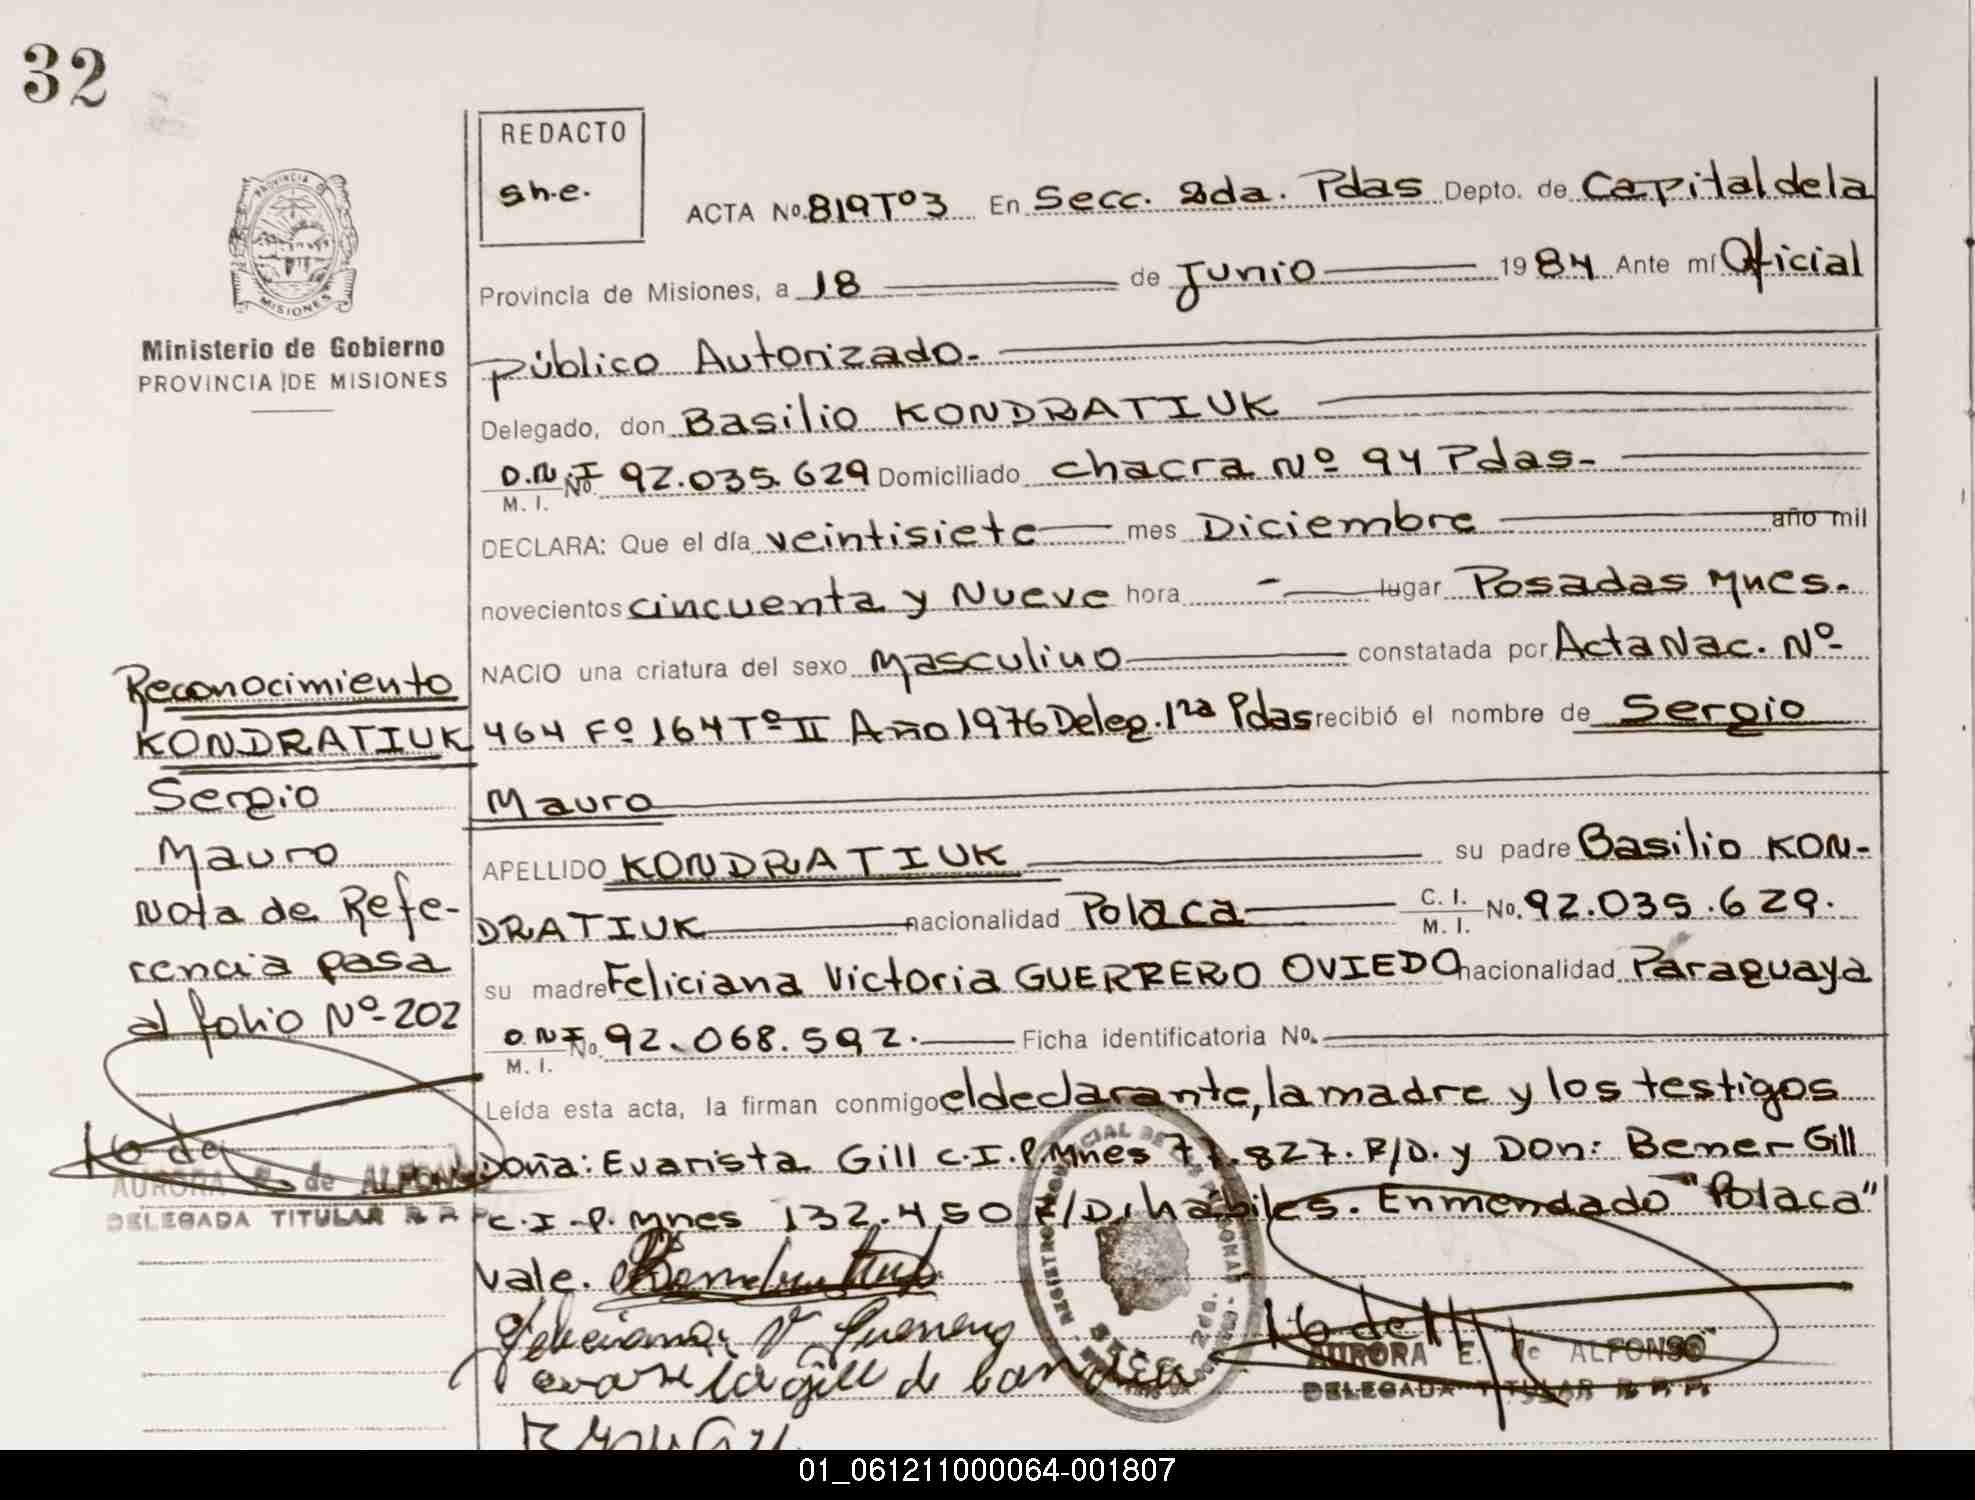 32
REDACTO
s.h.e.
ACTA No. 819 Tº 3 En Secc. 2da. Pdas Depto. de Capital de la
Provincia de Misiones, a 18 de Junio 1984 Ante mí Oficial
PROVINCIA DE
MISIONES
Ministerio de Gobierno
PROVINCIA DE MISIONES
público Autorizado.-
Delegado, don Basilio KONDRATIUK
D.N.I
M. I. No. 92.035.629 Domiciliado chacra Nº 94 Pdas-
DECLARA: Que el día veintisiete mes Diciembre año mil
novecientos cincuenta y Nueve hora - lugar Posadas Mnes.
NACIO una criatura del sexo Masculino constatada por Acta Nac. Nº
464 Fº 164 Tº II Año 1976 Deleg. 1ra Pdas recibió el nombre de Sergio
Mauro
APELLIDO KONDRATIUK su padre Basilio KON-
DRATIUK nacionalidad Polaca C. I.
M. I. No. 92.035.629.
su madre Feliciana Victoria GUERRERO OVIEDO nacionalidad Paraguaya
D.N.I
M. I. No. 92.068.592. Ficha identificatoria No.
Leída esta acta, la firman conmigo el declarante, la madre y los testigos
Doña: Evarista Gill C.I.P.Mnes 77.827. P/D. y Don: Bener Gill
C.I.P. Mnes 132.450 P/D, hábiles. Enmendado "Polaca"
vale.
Reconocimiento
KONDRATIUK
Sergio
Mauro
Nota de Refe-
rencia pasa
al folio Nº 202
AURORA E. de ALFONSO
DELEGADA TITULAR R P P
Feliciana V Guerrero
AURORA E. de ALFONSO
DELEGADA TITULAR R. P. P.
01_061211000064-001807